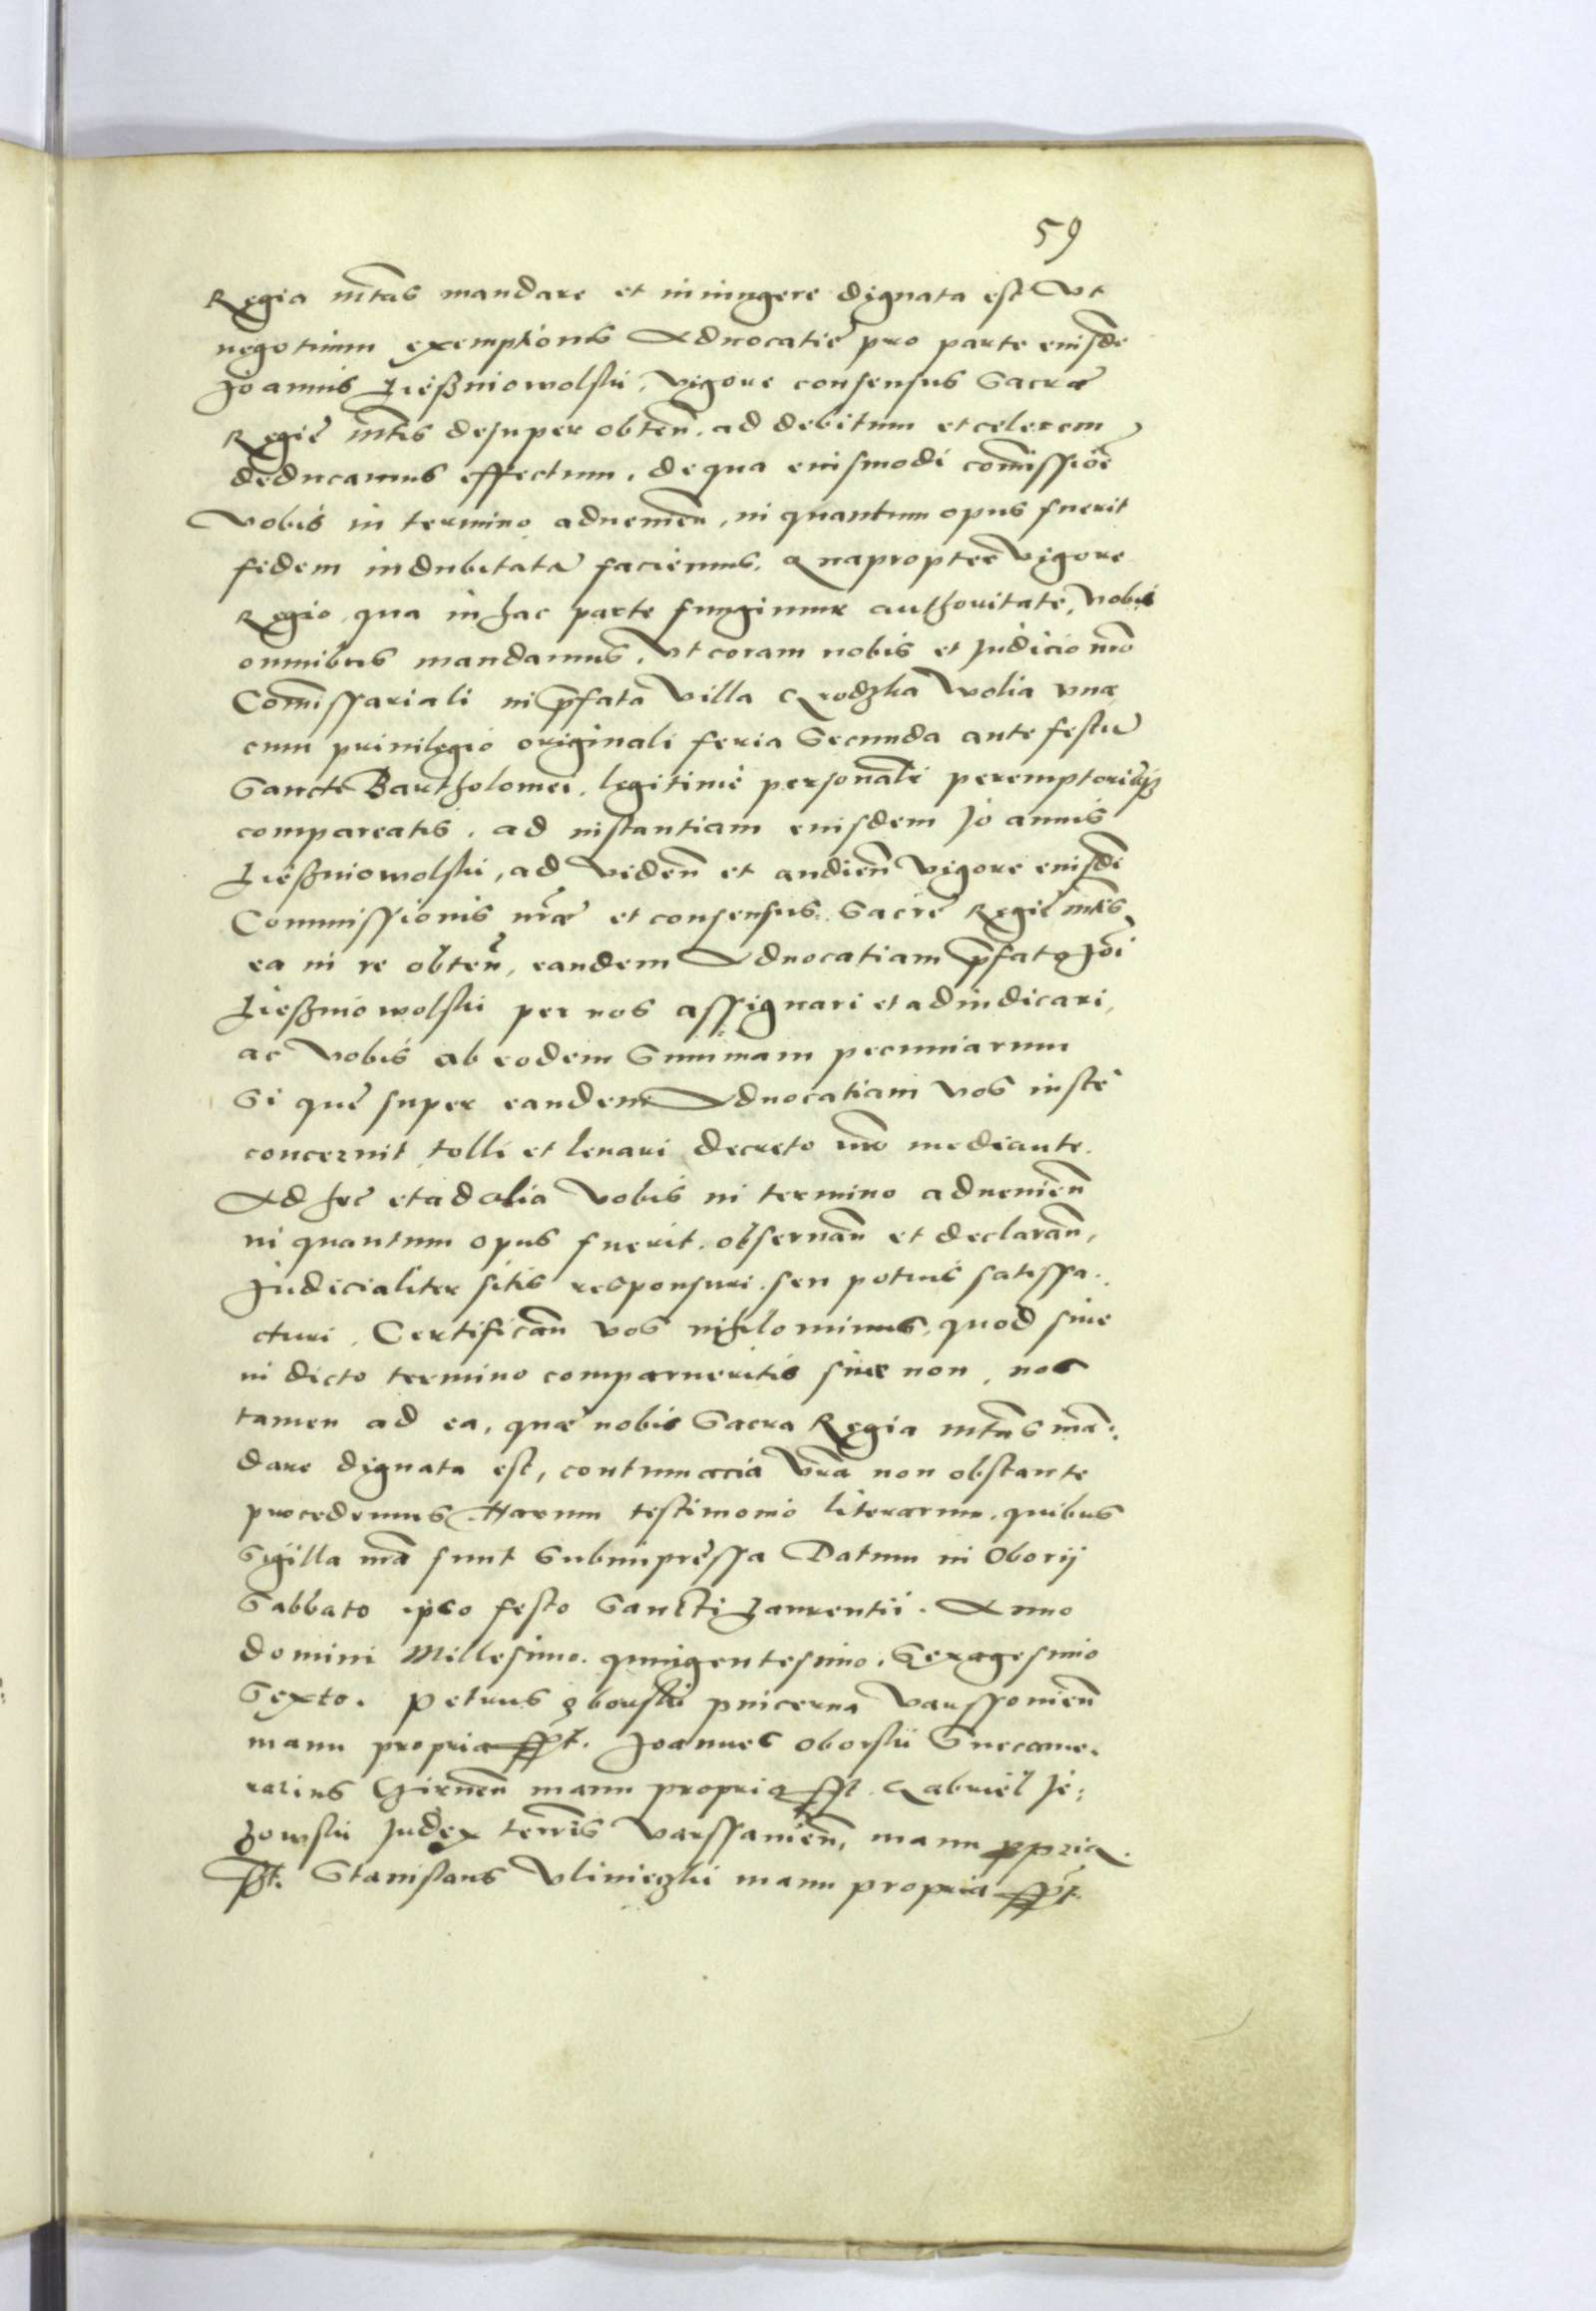 59
Regia mtas mandare et iniungere dignata est Vt
negotium exemptionis Aduocatie pro parte eiusde
Joannis Lieszniowolski, vigore consensus Sacrae
Regie mtis desuper obten. ad debitum et celerem
deducamus effectum. de qua eiusmodi comissioe
Vobis in termino aduenien, in quantum opus fuerit
fidem indubitata faciemus. Quapropter vigore
Regio qua in hac parte fungimur authoritate, vobis
omnibus mandamus. Vt coram nobis et Judicio nro
Comissariali in pfata Villa Grodzka Wolia vna
cum priuilegio originali feria Secunda ante festu
Sancti Bartholomei. legitime personalr peremptorieqz
compareatis. ad instantiam eiusdem Joannis
Lieszniowolski, ad viden et audien vigore eiusde
Commissionis nrae et consensus Sacre Regie mtis
ea in re obten, eandem Aduocatiam pfato Joi
Lieszniowolski per nos assignari et adiudicari,
ac vobis ab eodem Summam pecuniarum
Si que super eandem Aduocatiam vos iuste
concernit tolli et leuari decreto nro mediante.
Ad hec et ad alia vobis in termino aduenien
in quantum opus fuerit obseruan et declaran,
Judicialiter sitis responsuri. seu potius satisfa:
cturi. Certifican vos nihilominus, quod siue
in dicto termino comparueritis siue non, nos
tamen ad ea, quae nobis Sacra Regia mtas ma:
dare dignata est, contumacia vra non obstante
procedemus. Harum testimonio literarum. quibus
Sigilla nra sunt Subimpressa Datum in Oborij
Sabbato ipso festo Sancti Laurentii. Anno
domini Millesimo. quingentesimo. Sexagesimo
Sexto. Petrus Zborski pincerna Varssouien
manu propria sst. Joannes Oborski Succame.
rarius Czirnen manu propria sst. Gabriel Je:
zowski Judex terris Varssauien, manu ppria.
sst. Stanislaus Vlinieczki manu propria sst